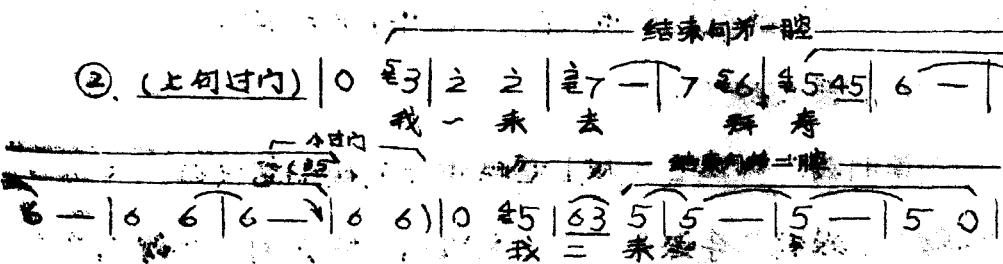 结束句第一腔
②. (上句过门) | 0 3 | 2 2 | 7 — | 7 6 | 5 45 | 6 — |
我 一 来 去 拜 寿
小过门
结束句第二腔
6 — | 6 6 | 6 — | 6 6) | 0 5 | 63 5 | 5 — | 5 — | 5 0 |
我 二 来